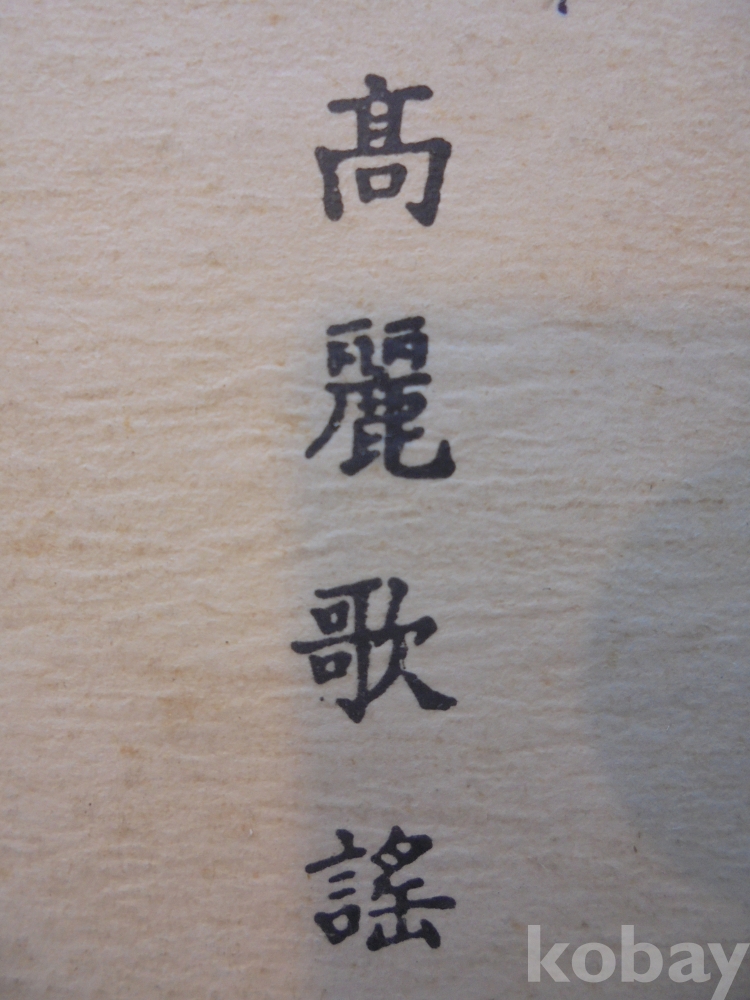 髙麗歌謠
kobay